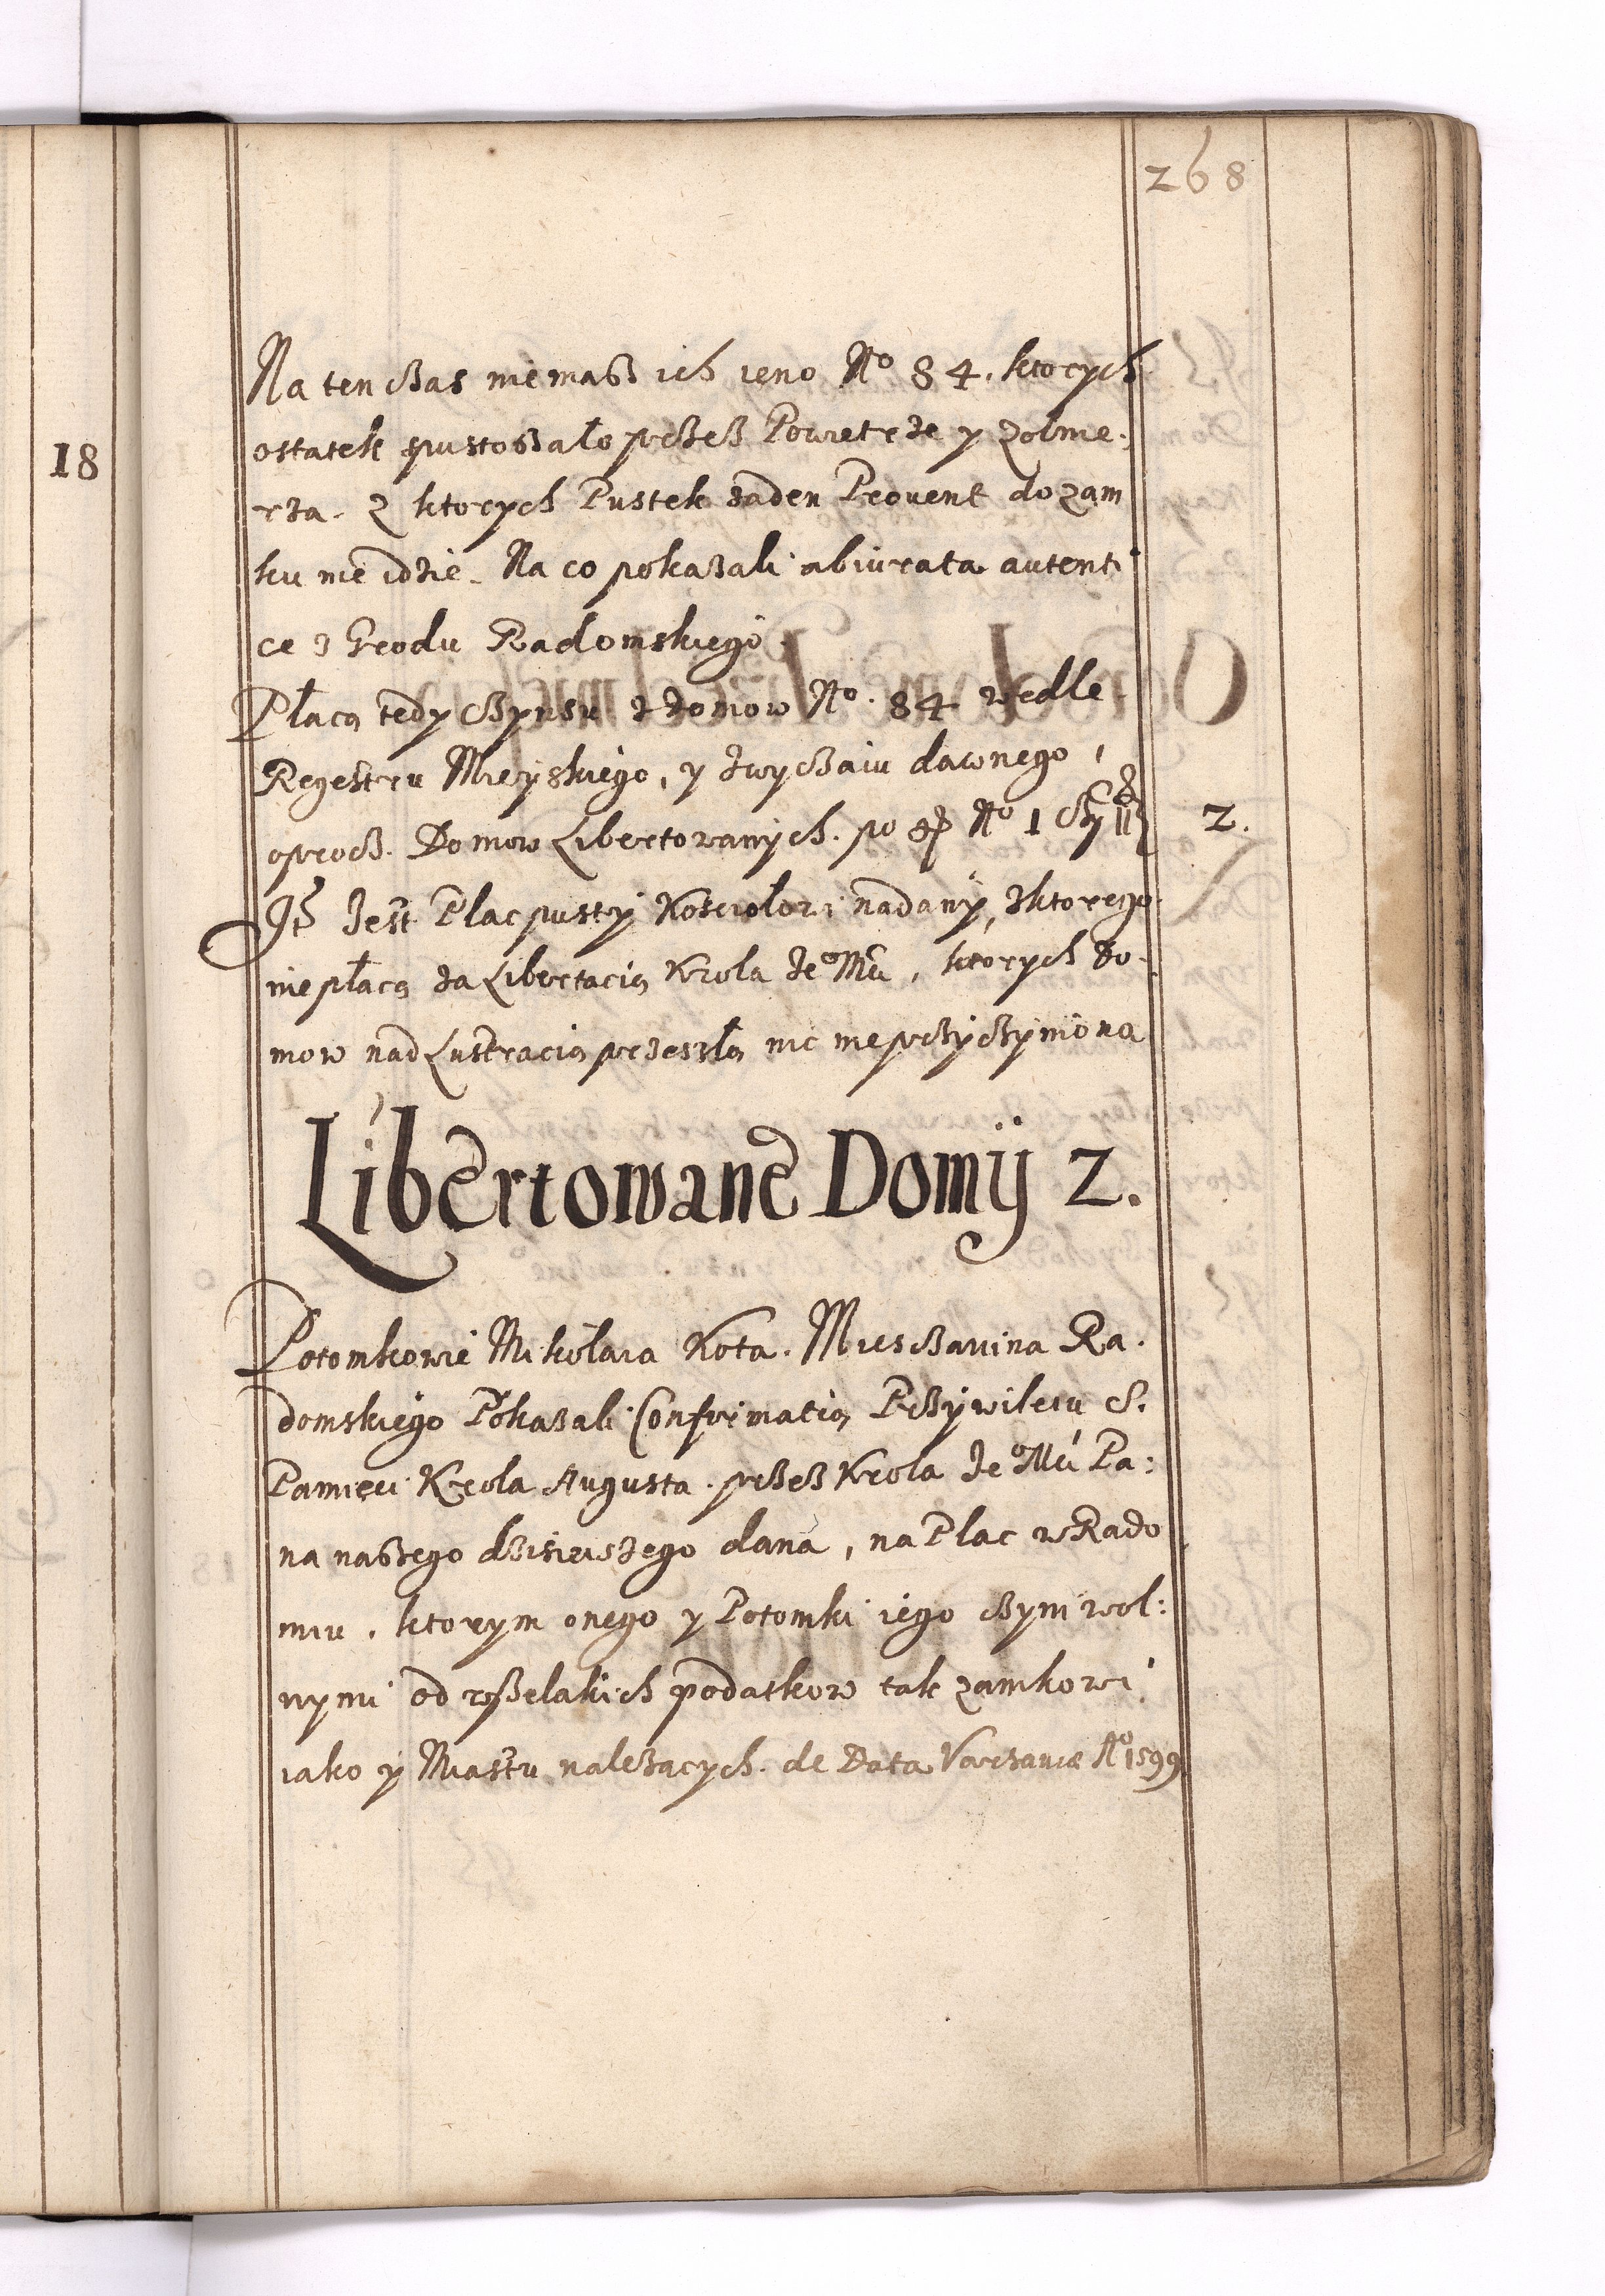 268
18
Na ten cżas niemaß ich ieno No 84. ktorych
ostatek spustoszało przez Powietrze y zołnie:
rza. z ktorych Pustek zaden Provent do zam
ku nie idzie. Na co pokazali abiurata autenti
ce z Grodu Radomskiego.
Płacą tedy czynsu z domow No. 84 wedle
Regestru Mieyskiego, y zwyczaiu dawnego,
oprocz. Domow Libertowanych. po No 1 cży
2.
It Jest Plac pusty Kosciołowi nadany, z ktorego
nie płacą za Libertacią Krola Je° Mći, ktorych Do:
mow nad Lustracią przeszłą nic nie przyczyniono
Libertowane Domÿ 2.
Potomkowie Mikołaia Kota. Miesczanina Ra.
domskiego Pokazali Confirmatią Przywileiu S.
Pamięci Krola Augusta. przez Krola Je° Mći Pa:
na naszego dzisieiszego dana, na Plac w Rado
miu. ktorym onego y Potomki iego czyni wol:
nymi od wszelakich podatkow tak zamkowi
iako y Miastu nalezacych. de Data Varsaviæ A° 1599